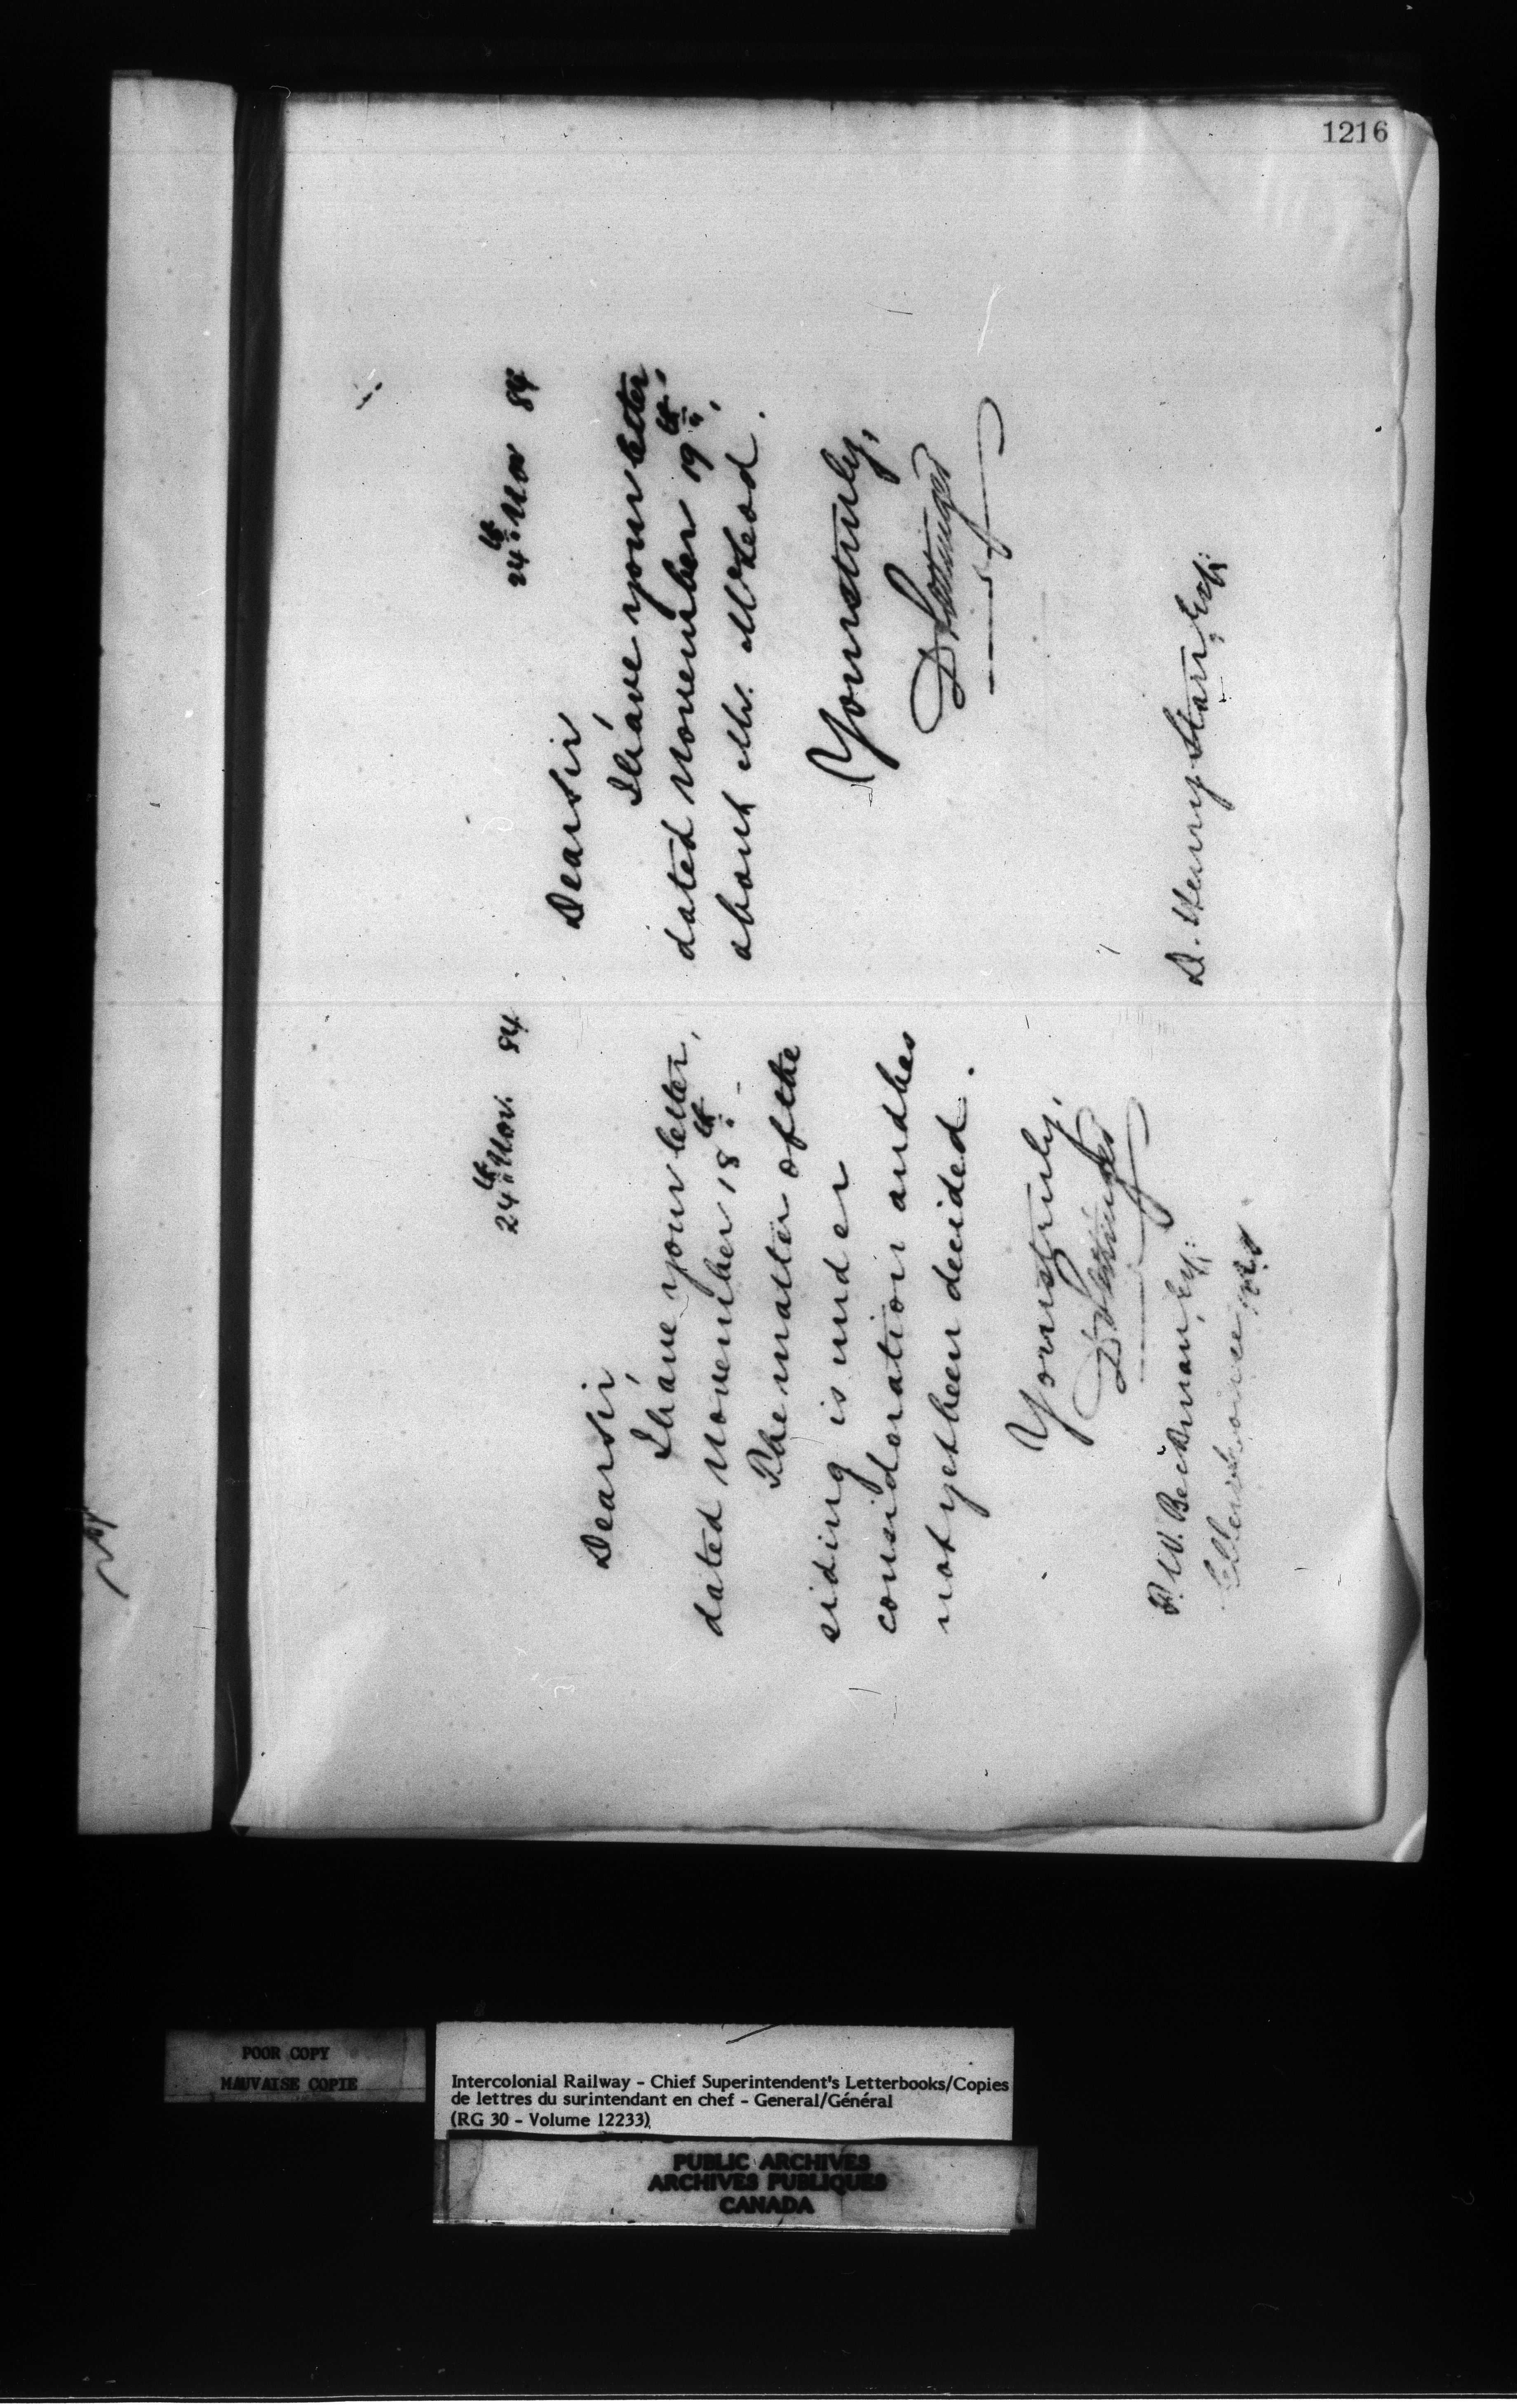 1216
24th Nov. 84
Dear Sir
I have your letter,
dated November 18th. -
The matter of the
siding is under
consideration and has
not yet been decided.
Yours truly,
D Pottinger
P. W. Beckman, Esq:
24th Nov 84
Dear Sir
I have your letter,
dated November 19th,
about Mr. McLeod.
Yours truly,
D Pottinger
D. Henry Starr, Esq:
POOR COPY
MAUVAISE COPIE
Intercolonial Railway - Chief Superintendent's Letterbooks/Copies
de lettres du surintendant en chef - General/Général
(RG 30 - Volume 12233)
PUBLIC ARCHIVES
ARCHIVES PUBLIQUES
CANADA